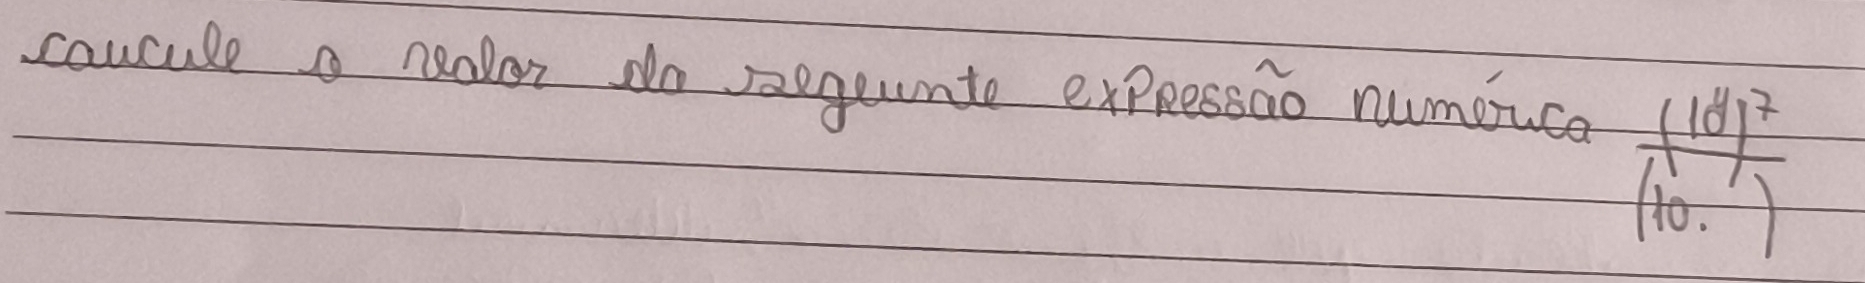 caucule o valor da segeunte expressão numérica (10)⁷
(10. )